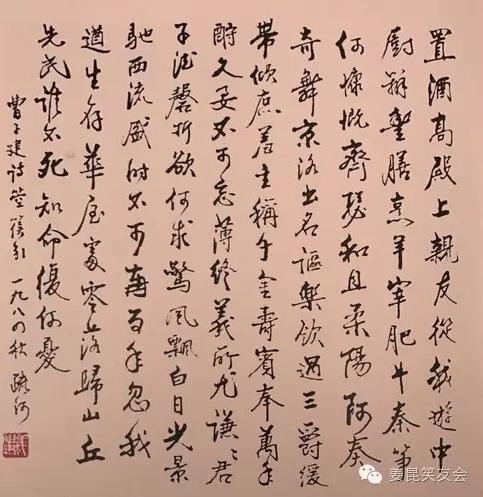 置酒高殿上親友從我遊中
廚辦豐膳烹羊宰肥牛秦筝
何慷慨齊瑟和且柔陽阿奏
奇舞京洛出名謳樂飲過三爵緩
帶傾庶羞主稱千金壽賓奉萬年
酬久要不可忘薄終義所尤謙〻君
子德磬折欲何求驚風飄白日光景
馳西流盛時不可再百年忽我
遒生存華屋處零落歸山丘
先民誰不死知命復何憂
曹子建詩箜篌引 一九八〇秋
姜昆笑友会